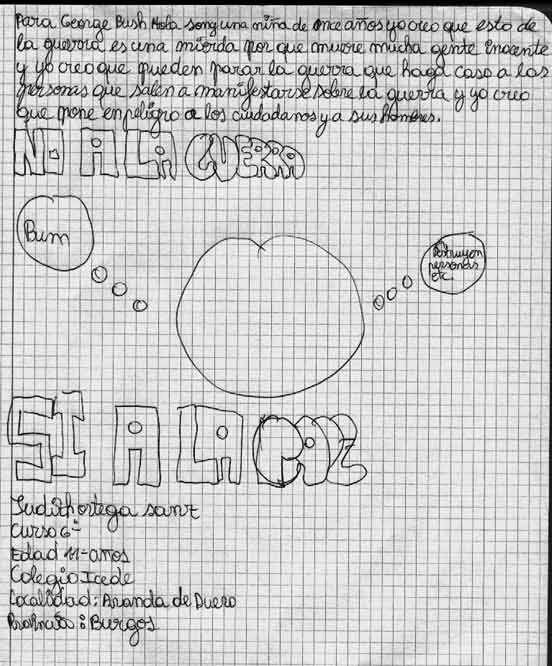 Para George Bush Hola song una niña de once años yo creo que esto de
la guerra es una mierda por que muere mucha gente inocente
y yo creo que pueden parar la guerra que haga caso a las
personas que salen a manifestarse sobre la guerra y yo creo
que pone en peligro a los ciudadanos y a sus hombres.
NO A LA GUERRA
Bum
destruyen
personas
etc.
SI A LA PAZ
Judith ortega sanz
Curso 6º
Edad 11-años
Colegio Icede
Localidad: Aranda de Duero
Probincia: Burgos